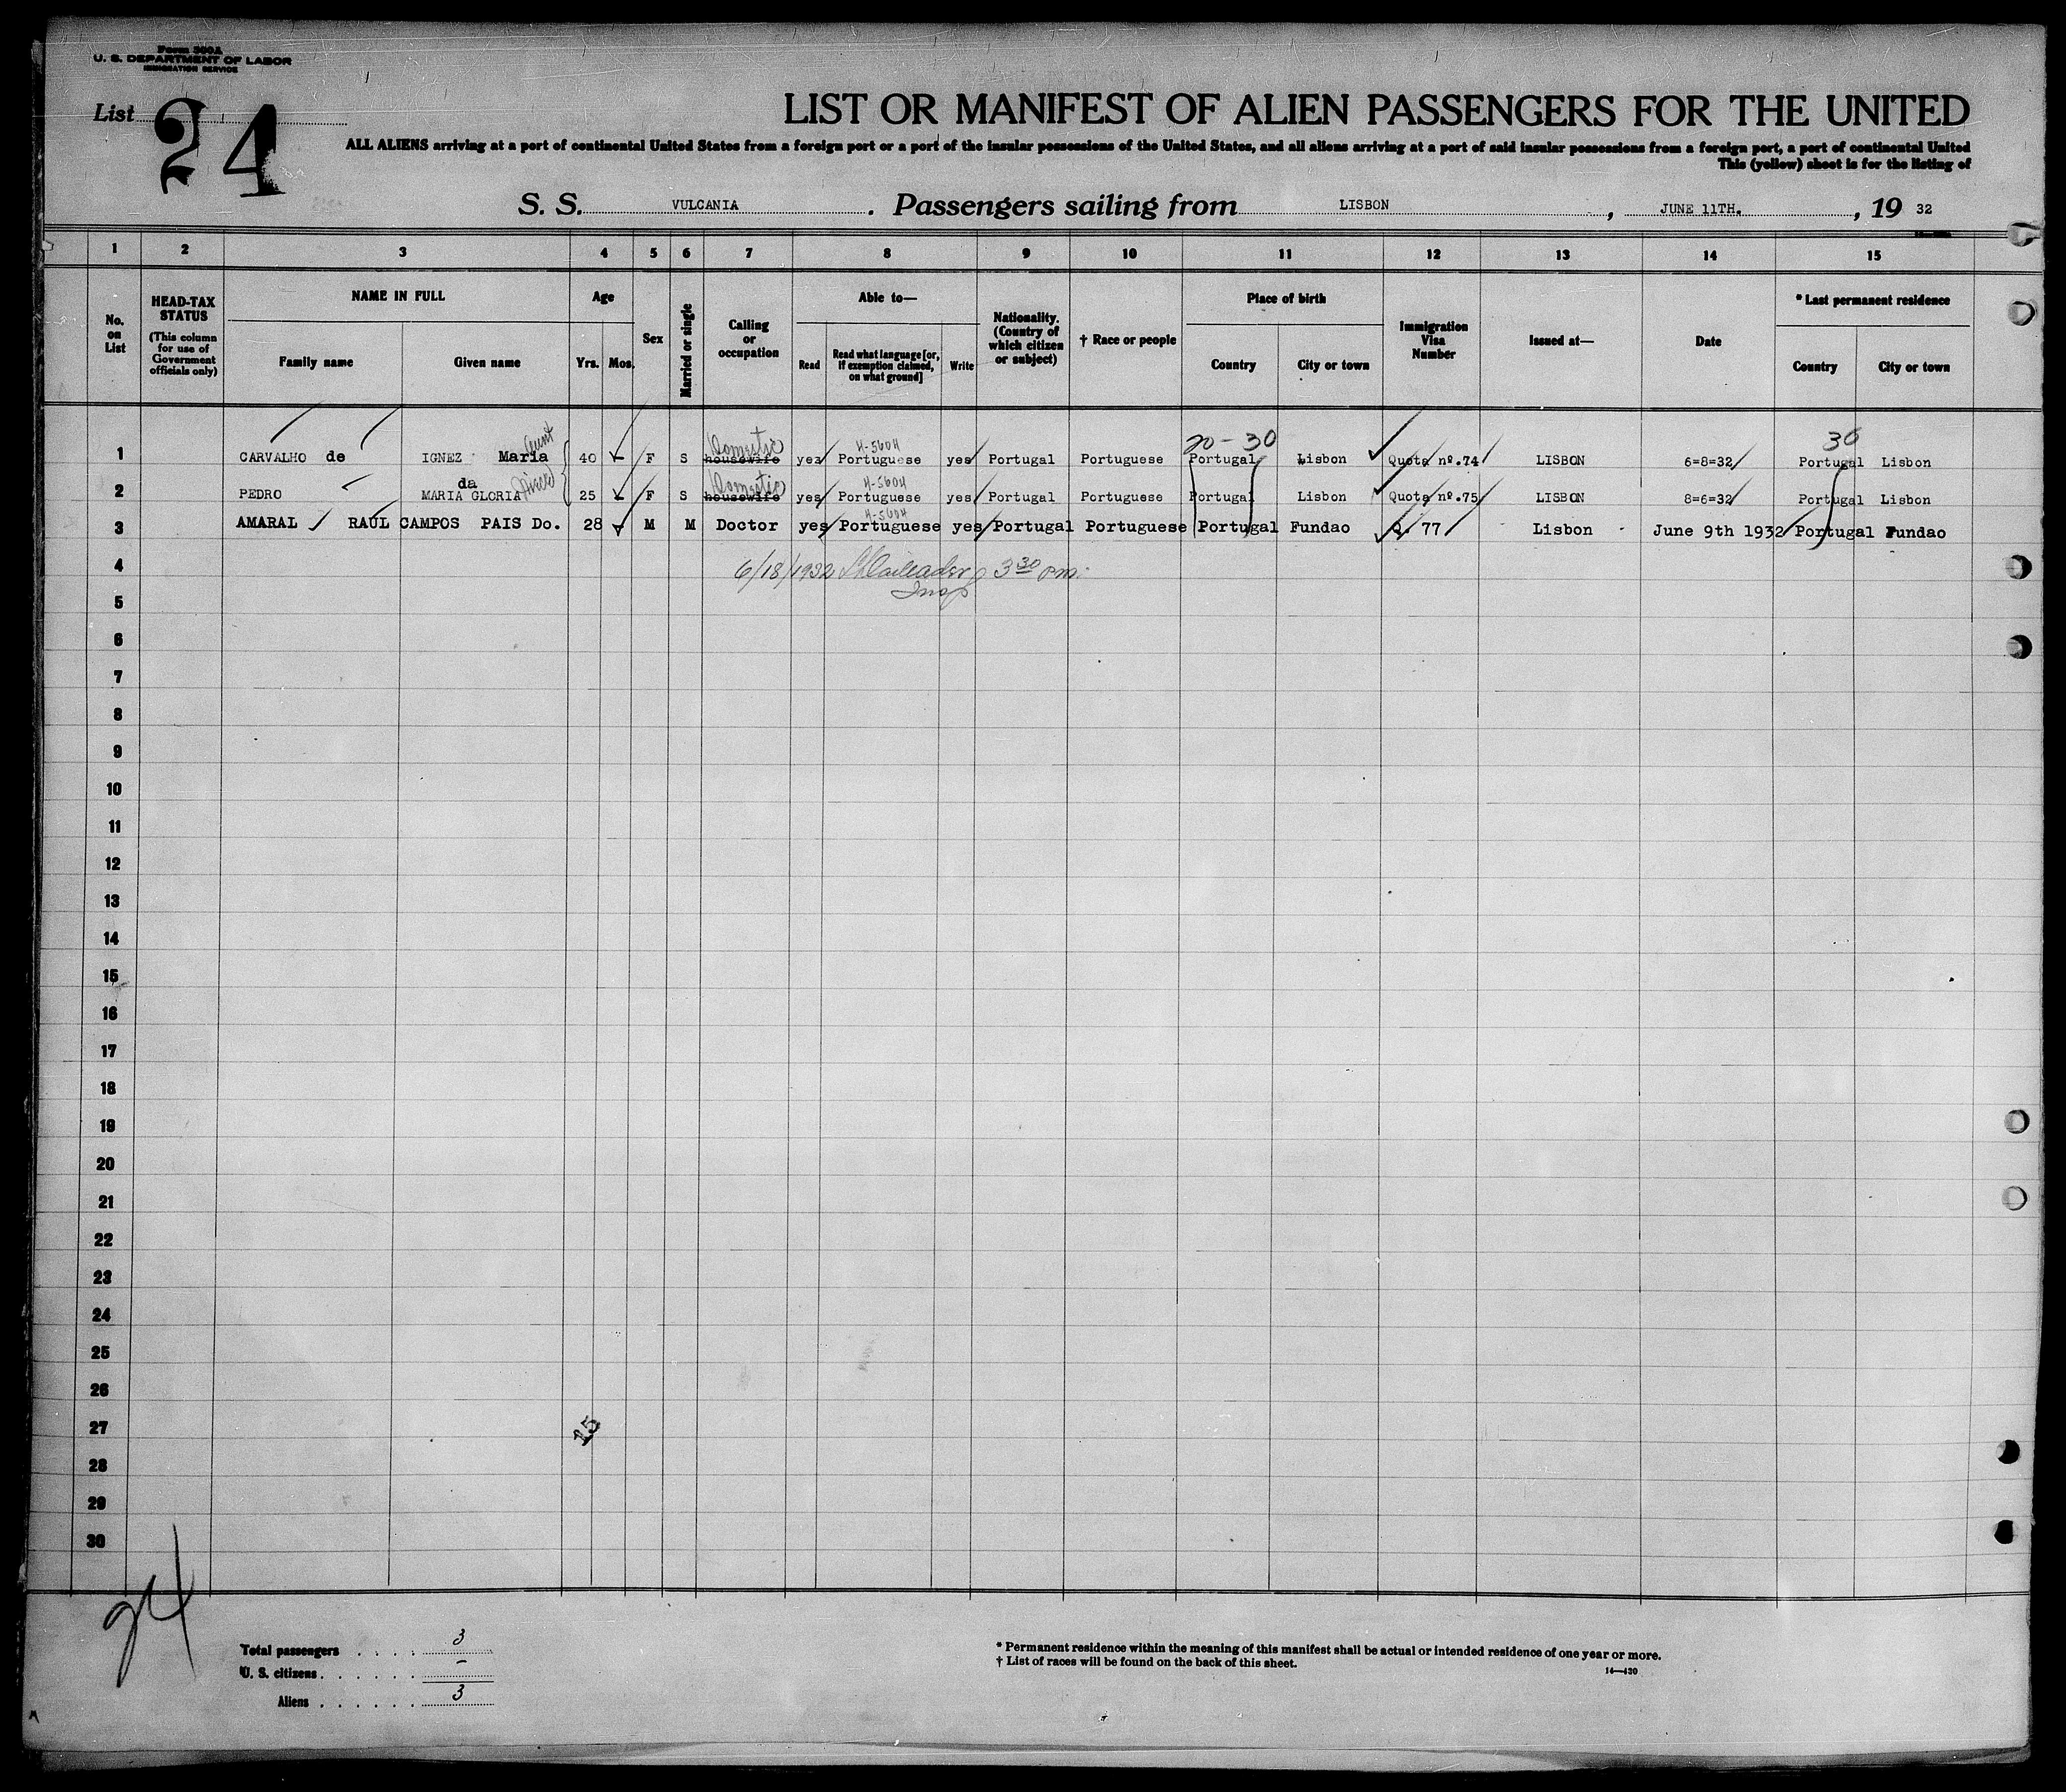 Form 500A
U. S. DEPARTMENT OF LABOR
IMMIGRATION SERVICE
List 24
LIST OR MANIFEST OF ALIEN PASSENGERS FOR THE UNITED
ALL ALIENS arriving at a port of continental United States from a foreign port or a port of the insular possessions of the United States, and all aliens arriving at a port of said insular possessions from a foreign port, a port of continental United
This (yellow) sheet is for the listing of
S. S. VULCANIA. Passengers sailing from LISBON, JUNE 11TH., 19 32
1 2 3 4 5 6 7 8 9 10 11 12 13 14 15
No. on List
HEAD-TAX STATUS (This column for use of Government officials only)
NAME IN FULL Family name Given name
Age Yrs. Mos.
Sex
Married or single
Calling or occupation
Able to— Read Read what language [or, if exemption claimed, on what ground] Write
Nationality. (Country of which citizen or subject)
† Race or people
Place of birth Country City or town
Immigration Visa Number
Issued at—
Date
* Last permanent residence Country City or town
Aunt Domestic 4-5604 20-30 30
1 CARVALHO de IGNEZ Maria 40 F S housewife yes Portuguese yes Portugal Portuguese Portugal Lisbon Quota nº.74 LISBON 6=8=32 Portugal Lisbon
da Niece Domestic 4-5604
2 PEDRO MARIA GLORIA 25 F S housewife yes Portuguese yes Portugal Portuguese Portugal Lisbon Quota nº.75 LISBON 8=6=32 Portugal Lisbon
4-5604
3 AMARAL RAUL CAMPOS PAIS Do. 28 M M Doctor yes Portuguese yes Portugal Portuguese Portugal Fundao Q. 77 Lisbon June 9th 1932 Portugal Fundao
4 6/18/1932 3 30 pm.
Insp
5
6
7
8
9
10
11
12
13
14
15
16
17
18
19
20
21
22
23
24
25
26
27 25
28
29
30
24
Total passengers . . . . 3
U. S. citizens . . . . . . –
Aliens . . . . . . 3
* Permanent residence within the meaning of this manifest shall be actual or intended residence of one year or more.
† List of races will be found on the back of this sheet.
14—430